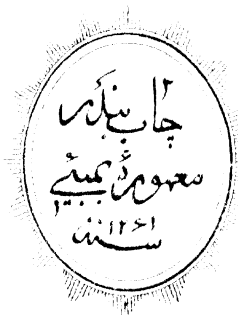 چاپ بندر
معمورهٔ بمبئی
سنه ۱۲۶۱